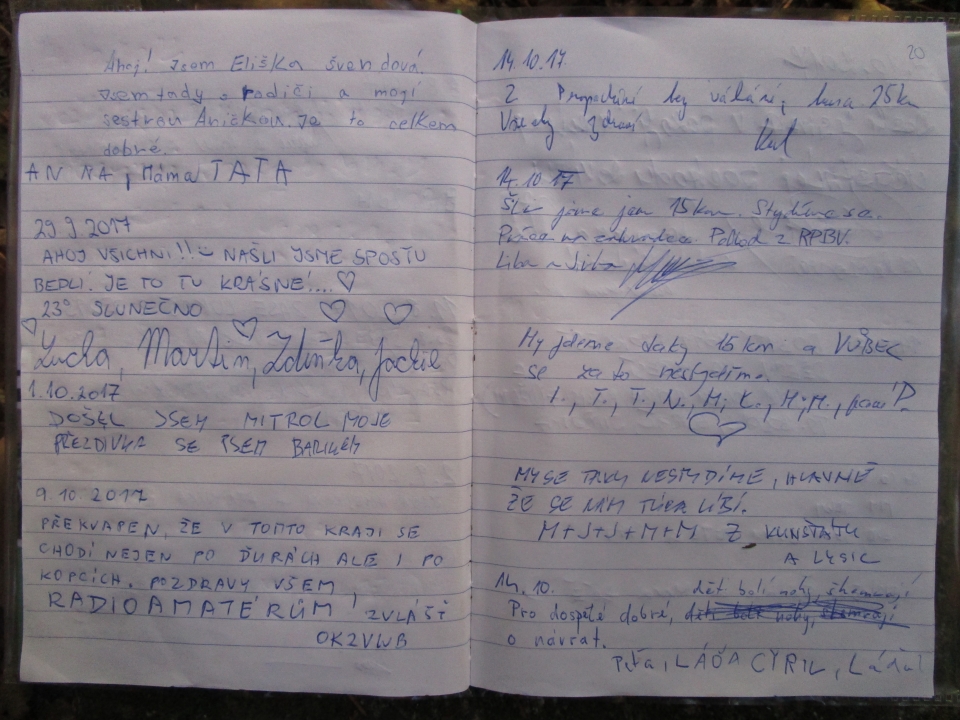 Ahoj! Jsem Eliška Švendová.
Jsem tady s rodiči a mojí
sestrou Aničkou. Je to celkem
dobré.
ANNA, Máma TATA
29 9 2017
AHOJ VŠICHNI!! NAŠLI JSME SPOSTU
BEDLÍ. JE TO TU KRÁSNÉ!...♡
23° SLUNEČNO
Lucka, Martin, Zdeňka, Jackie
1.10.2017
DOŠEL JSEM MITROL MOJE
PŘEZDIVKA SE PSEM BARIKEM
9.10.2017
PŘEKVAPEN, ŽE V TOMTO KRAJI SE
CHODÍ NEJEN PO ĎURÁCH ALE I PO
KOPCÍCH. POZDRAVY VŠEM
RADIOAMATÉRŮM! ZVLÁŠŤ
OK2VWB
20
14.10.17
Z Propadání bez váhání, 25km
Všecky zdraví
14.10 17
Šli jsme jen 15km. Stydíme se.
Pochod z RPBV.
My jdeme taky 15 km a VŮBEC
se za to nestydíme.
I., T., T., N., M., K., M.M., paní P.
♡
MY SE TAKY NESTYDÍME, HLAVNĚ
ŽE SE NÁM TÚRA LÍBÍ.
M+J+J+M+M Z KUNŠTÁTU
A LYSIC
14.10. děti bolí nohy, škemrají
Pro dospělé dobré, děti bolí nohy, škemrají
o návrat.
Péťa, LÁĎA CYRIL, Láďa